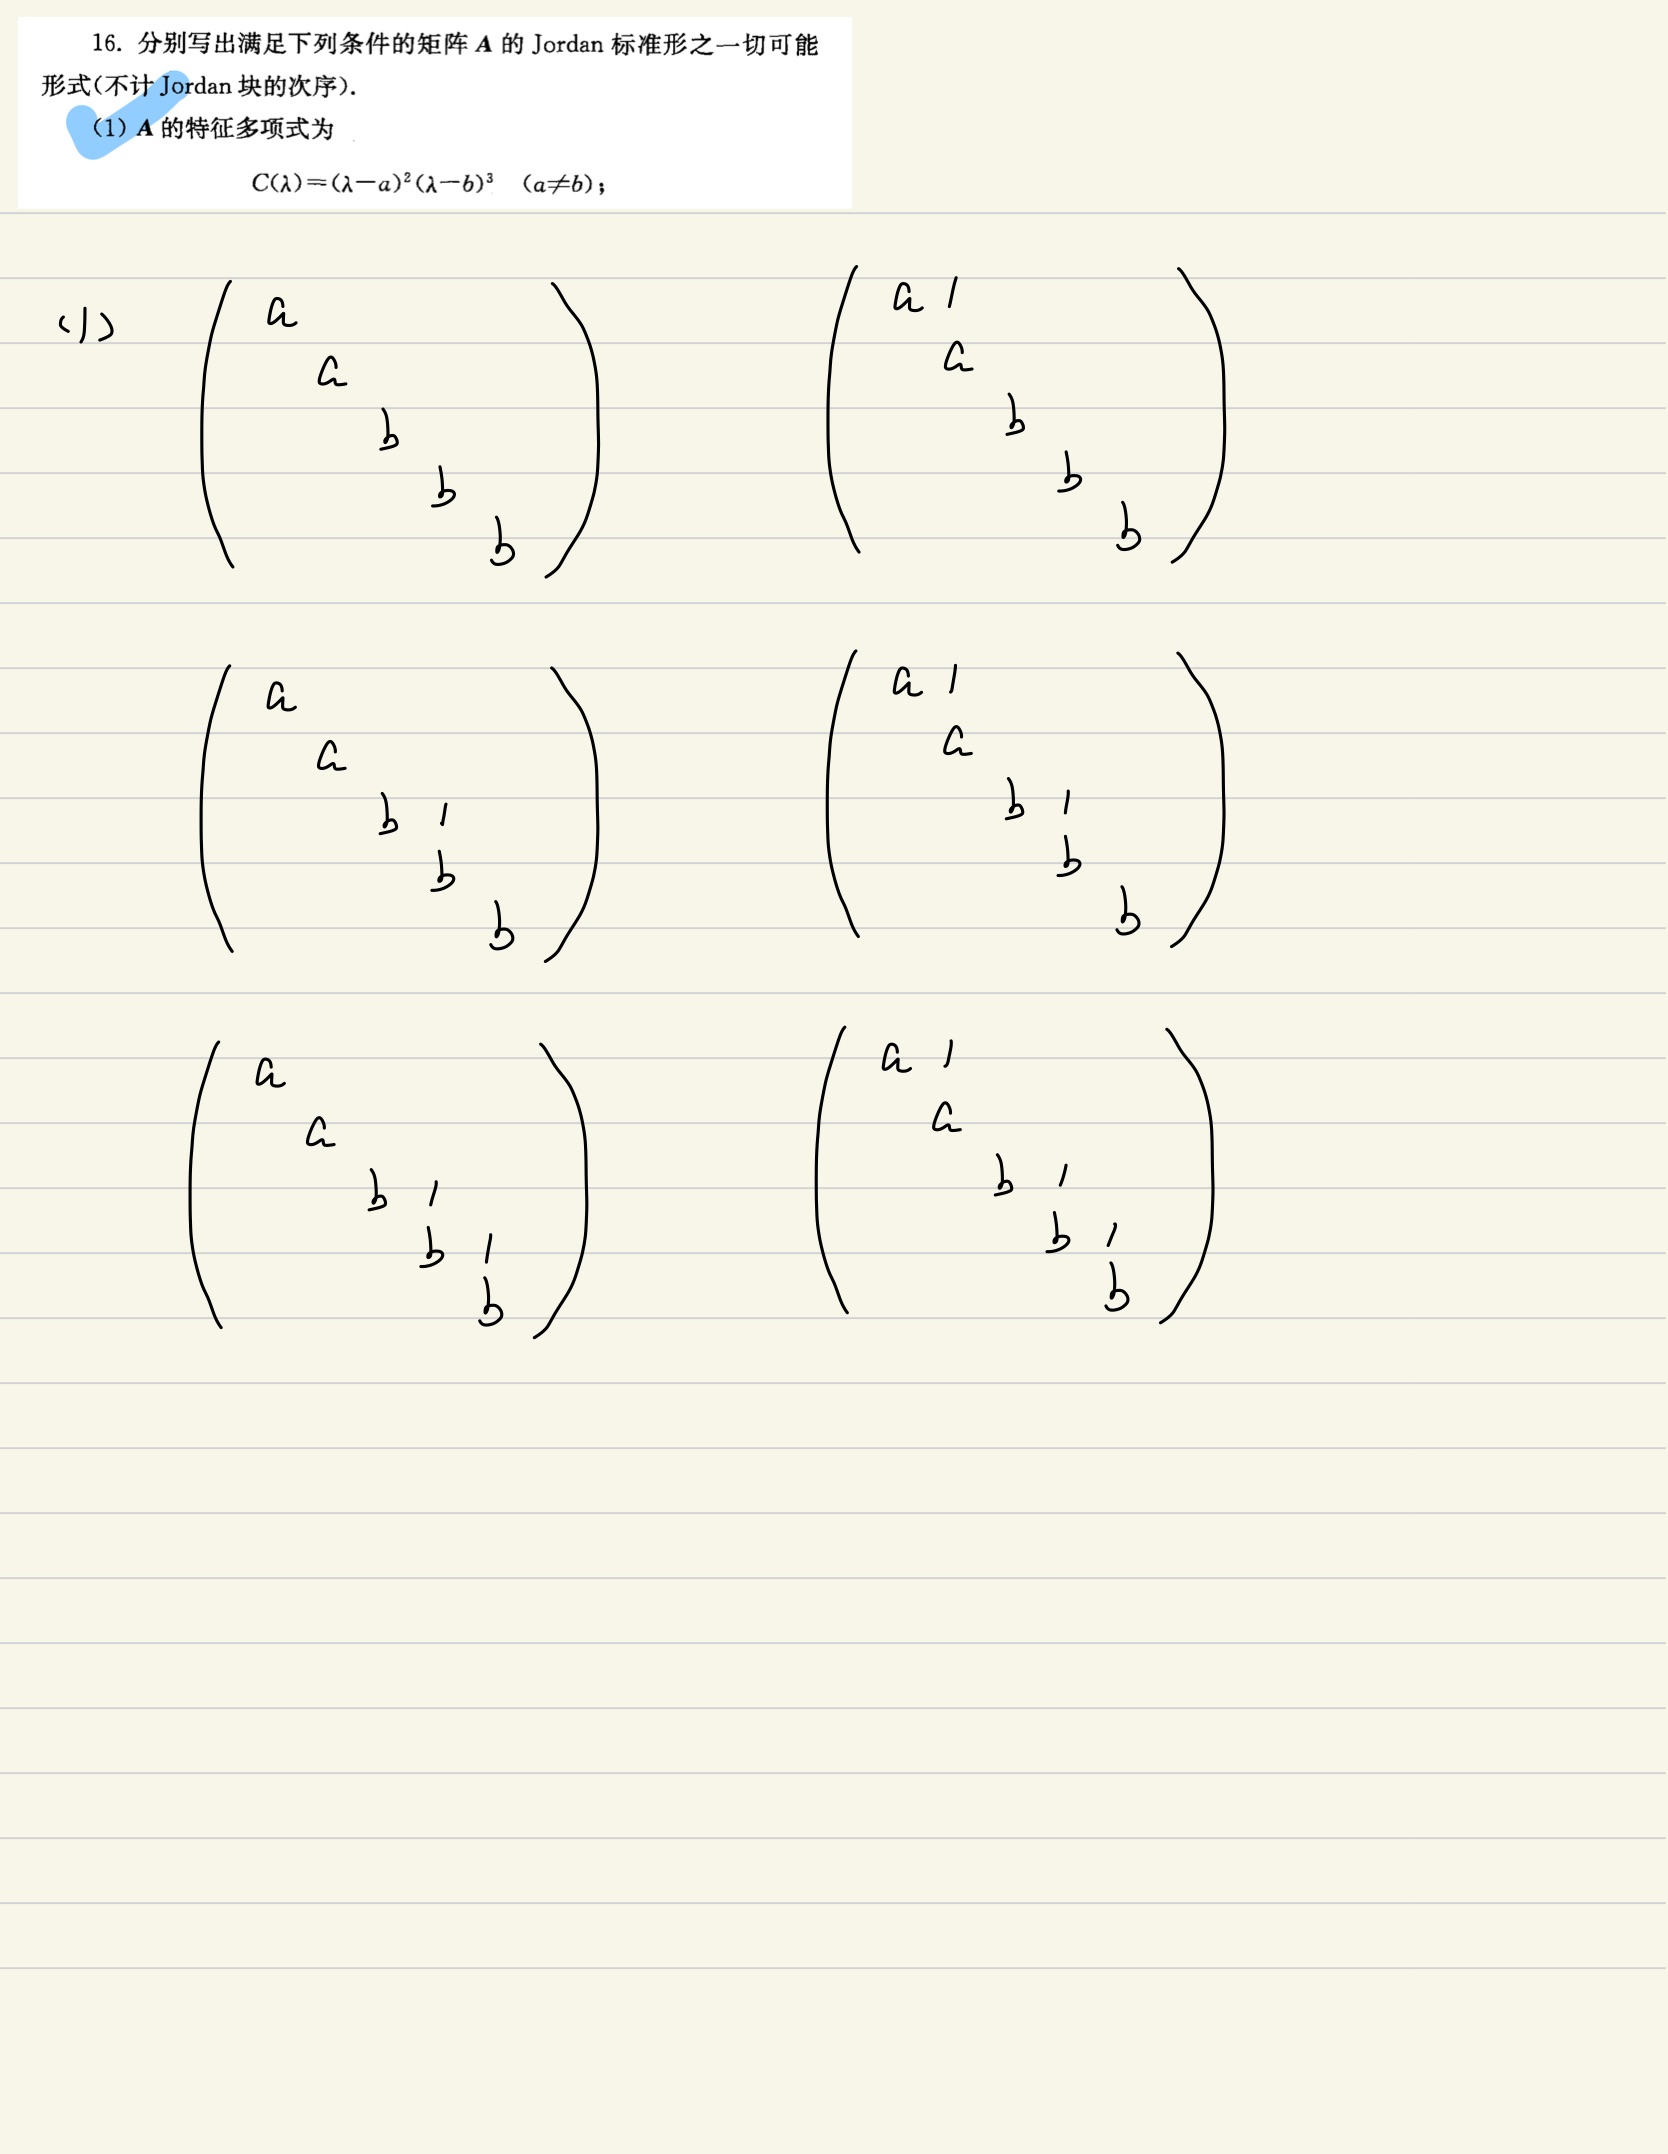 16. 分别写出满足下列条件的矩阵 A 的 Jordan 标准形之一切可能
形式(不计 Jordan 块的次序).
(1) A 的特征多项式为
C(λ)=(λ−a)²(λ−b)³ (a≠b);
(1)
a
a
b
b
b
a 1
a
b
b
b
a
a
b 1
b
b
a 1
a
b 1
b
b
a
a
b 1
b 1
b
a 1
a
b 1
b 1
b